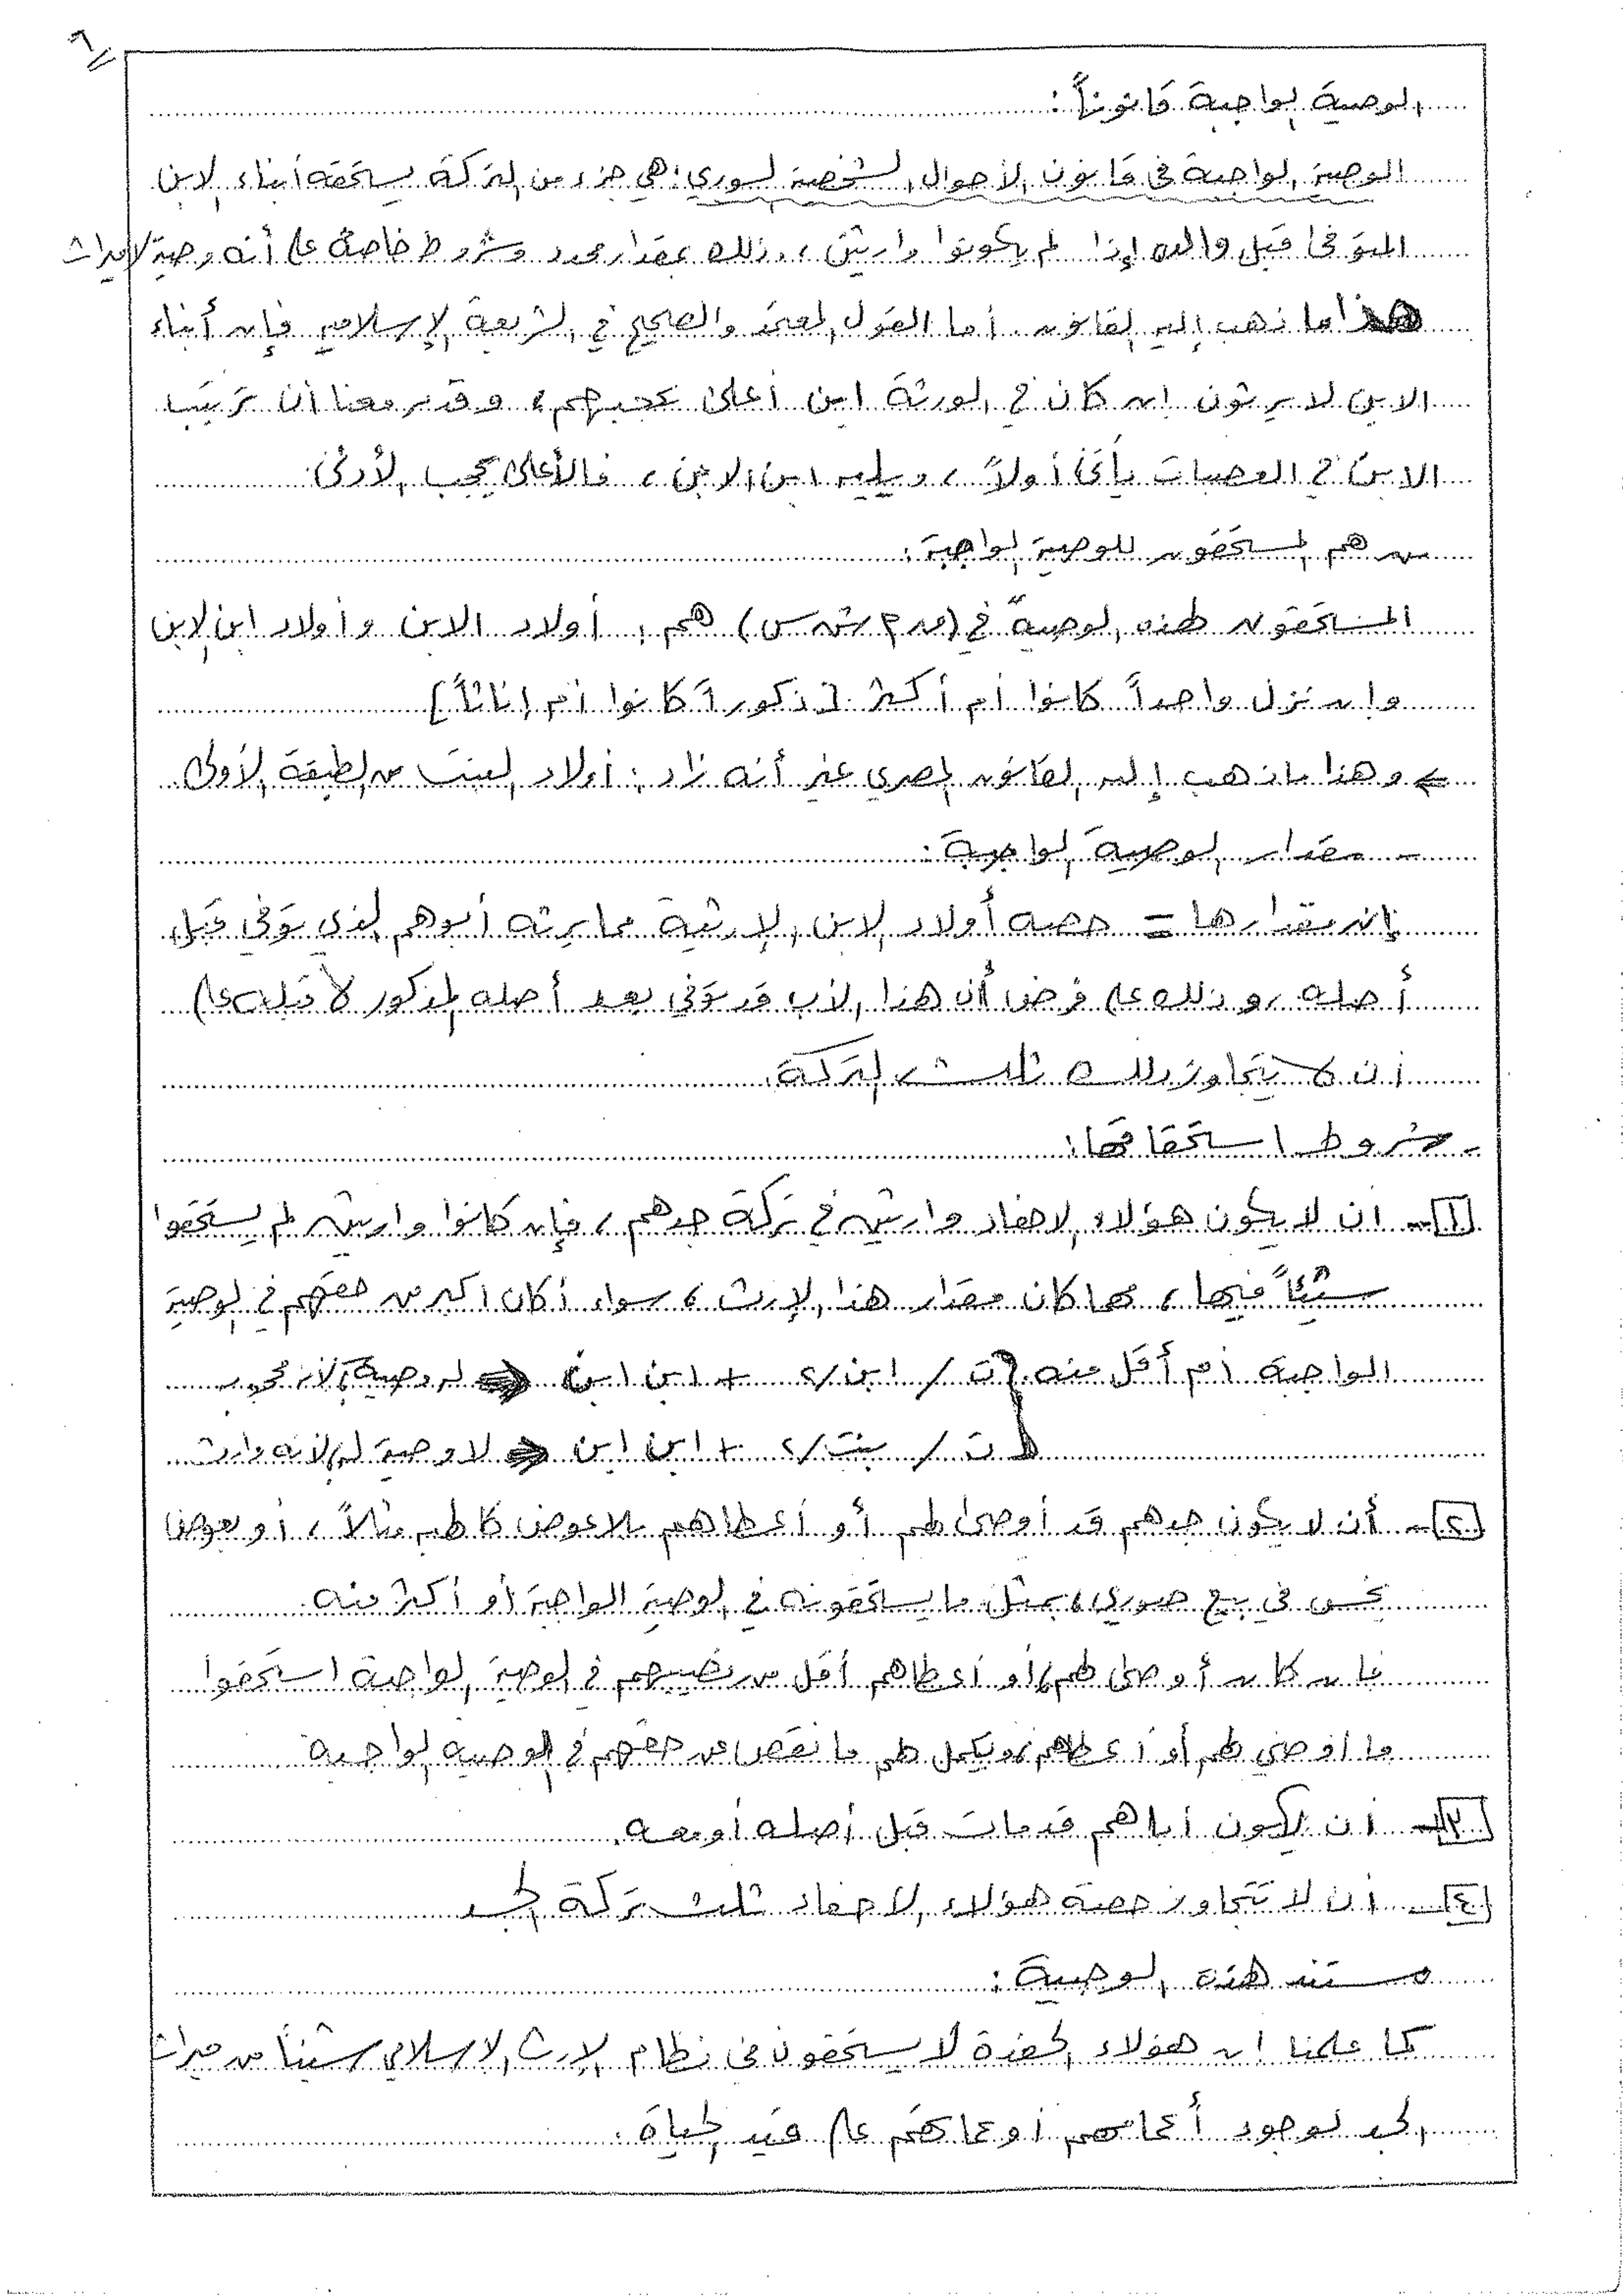 ٦
الوصية الواجبة قانوناً :
الوصية الواجبة في قانون الأحوال الشخصية السوري : هي جزء من التركة يستحقه أبناء الابن
المتوفى قبل والده إذا لم يكونوا وارثين ، وذلك بمقدار محدد وشروط خاصة على أنه وصية لا ميراث
هذا ما ذهب إليه القانون . أما القول المعتمد والصحيح في الشريعة الإسلامية فإن أبناء
الابن لا يرثون إن كان في الورثة ابن أعلى يحجبهم ، وقد مر معنا أن ترتيب
الابن في العصبات يأتي أولاً ، ويليه ابن الابن ، فالأعلى يحجب الأدنى .
من هم المستحقون للوصية الواجبة :
المستحقون لهذه الوصية في ( ش س ) هم : أولاد الابن وأولاد ابن الابن
وإن نزل واحداً كانوا أم أكثر [ ذكوراً كانوا أم إناثاً ]
وهذا ما ذهب إليه القانون المصري غير أنه زاد : أولاد البنت من الطبقة الأولى
- مقدار الوصية الواجبة :
إن مقدارها = حصة أولاد الابن الإرثية مما يرثه أبوهم الذي توفي قبل
أصله ، وذلك على فرض أن هذا الأب قد توفي بعد أصله المذكور لا قبله على
أن لا يتجاوز ذلك ثلث التركة .
- شروط استحقاقها :
١- أن لا يكون هؤلاء الأحفاد وارثين في تركة جدهم ، فإن كانوا وارثين لم يستحقوا
شيئاً فيها ، مهما كان مقدار هذا الإرث ، سواء أكان أكبر من حقهم في الوصية
الواجبة أم أقل منه ت / ابن /٢ + ابن ابن ⇐ له وصية لأنه محجوب
ت / بنت /٢ + ابن ابن ⇐ لا وصية له لأنه وارث
٢- أن لا يكون جدهم قد أوصى لهم أو أعطاهم بلا عوض كالهبة مثلاً ، أو بعوض
بخس في بيع صوري ، بمثل ما يستحقونه في الوصية الواجبة أو أكثر منه .
فإن كان أوصى لهم ، أو أعطاهم أقل من نصيبهم في الوصية الواجبة استحقوا
ما أوصي لهم أو أعطاهم ، ويكمل لهم ما نقص من حقهم في الوصية الواجبة
٣- أن يكون أباهم قد مات قبل أصله أو معه .
٤- أن لا تتجاوز حصة هؤلاء الأحفاد ثلث تركة الجد
مستند هذه الوصية :
كما علمنا أن هؤلاء الحفدة لا يستحقون في نظام الإرث الإسلامي شيئاً من ميراث
الجد لوجود أعمامهم أو عماتهم على قيد الحياة .